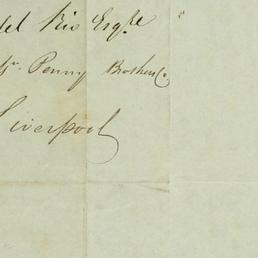 del Rio Esqre
Penny Brothers Co.
Liverpool